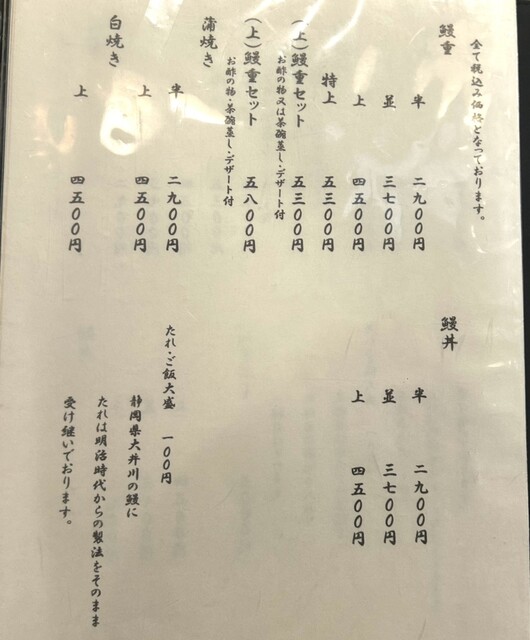 全て税込み価格となっております。
鰻重
半 二九〇〇円
並 三七〇〇円
上 四五〇〇円
特上 五三〇〇円
(上)鰻重セット 五三〇〇円
お酢の物又は茶碗蒸し・デザート付
(上)鰻重セット 五八〇〇円
お酢の物・茶碗蒸し・デザート付
蒲焼き
半 二九〇〇円
上 四五〇〇円
白焼き
上 四五〇〇円
鰻丼
半 二九〇〇円
並 三七〇〇円
上 四五〇〇円
たれ・ご飯大盛 一〇〇円
静岡県大井川の鰻に
たれは明治時代からの製法をそのまま
受け継いでおります。